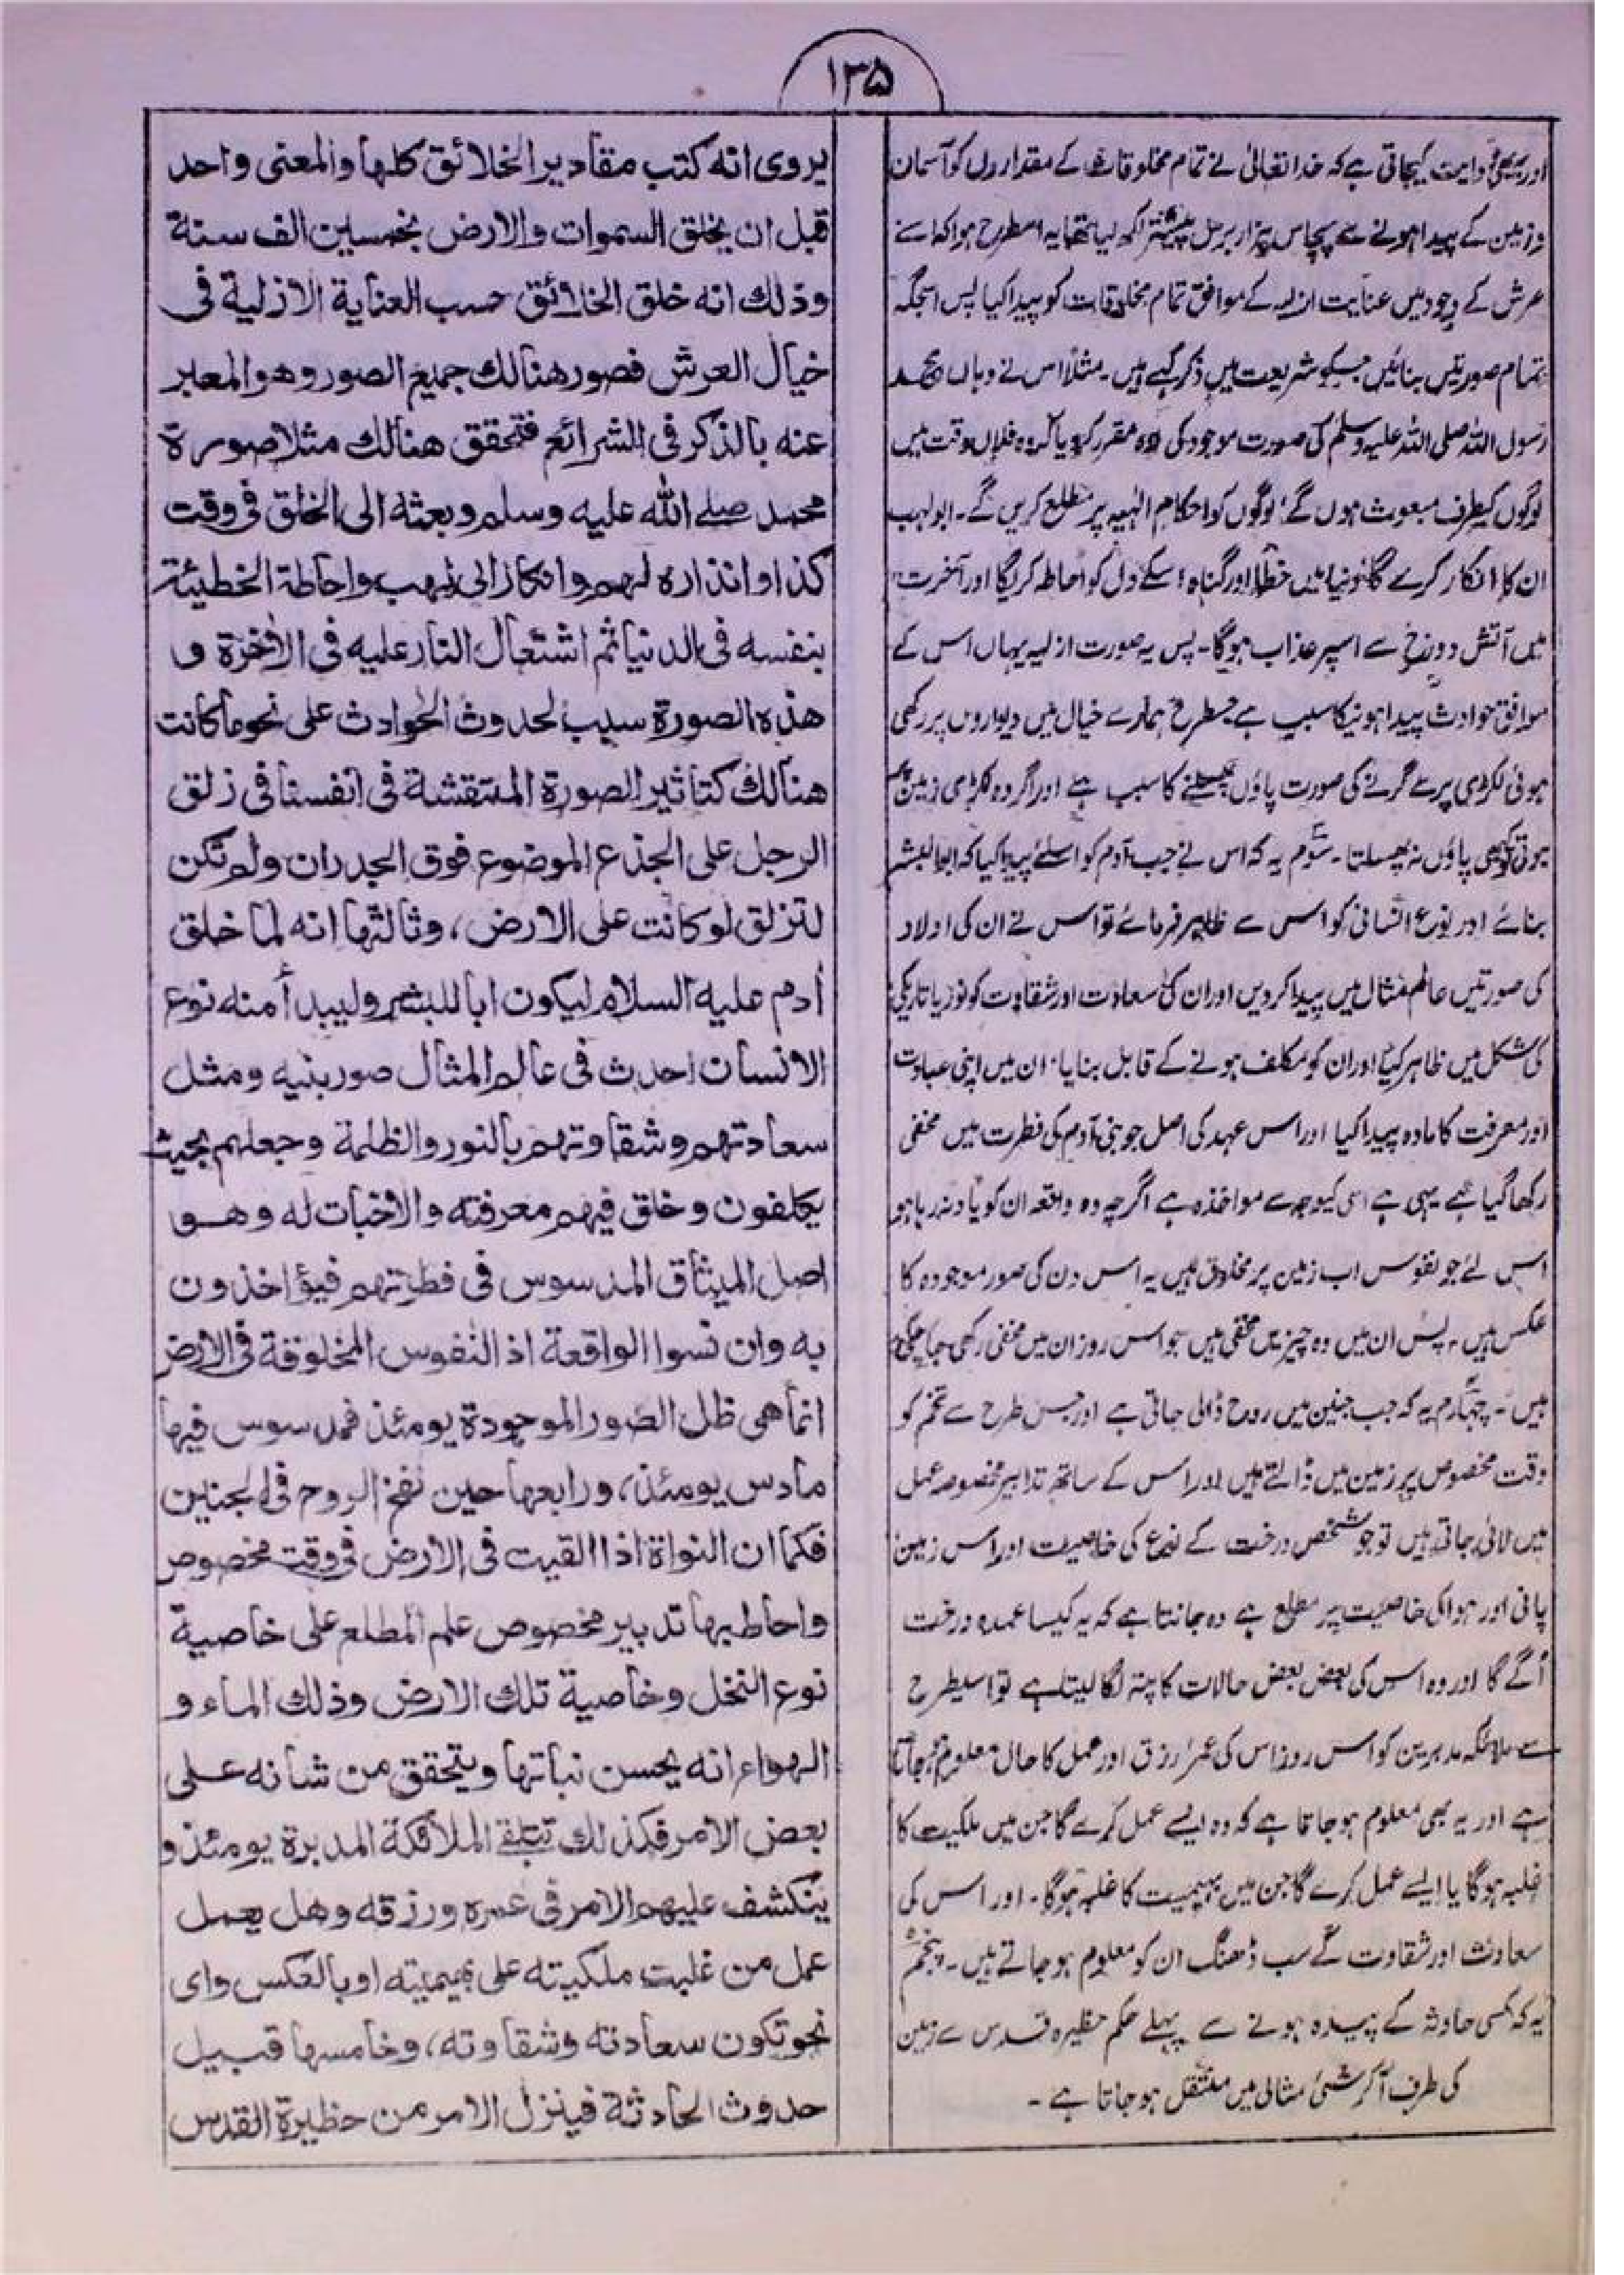 ۱۳۵
اور یہ بھی روایت کیجاتی ہے کہ خدا تعالیٰ نے تمام مخلوقات کے مقداروں کو آسمان
و زمین کے پیدا ہونے سے پچاس ہزار برس پیشتر لکھ لیا تھا یہ اسطرح ہوا کہ اسنے
عرش کے وجود میں عنایت ازلیہ کے موافق تمام مخلوقات کو پیدا کیا پس اسجگہ
تمام صورتیں بنائیں جسکو شریعت میں ذکر کہتے ہیں۔ مثلاً اس نے وہاں محمد
رسول اللہ صلی اللہ علیہ وسلم کی صورت موجود کی اور مقرر کر دیا کہ وہ فلاں وقت میں
لوگوں کیطرف مبعوث ہوں گے، لوگوں کو احکام الٰہیہ پر مطلع کریں گے۔ ابولہب
ان کا انکار کرے گا دنیا میں خطا اور گناہ اسکے دل کو احاطہ کر لیگا اور آخرت
میں آتش دوزخ سے اسپر عذاب ہوگا۔ پس یہ صورت ازلیہ یہاں اس کے
موافق حوادث پیدا ہونیکا سبب ہے جسطرح ہمارے خیال میں دیواروں پر رکھی
ہوئی لکڑی پر سے گرنے کی صورت پاؤں پھسلنے کا سبب ہے اور اگر وہ لکڑی زمین پر
ہوتی تو کبھی پاؤں نہ پھسلتا۔ سوم یہ کہ اس نے جب آدم کو اسلئے پیدا کیا کہ ابوالبشر
بنائے اور نوع انسانی کو اس سے ظاہر فرمائے تو اس نے ان کی اولاد
کی صورتیں عالم مثال میں پیدا کر دیں اور ان کی سعادت اور شقاوت کو نور یا تاریکی
کی شکل میں ظاہر کیا اور ان کو مکلف ہونے کے قابل بنایا، ان میں اپنی عبادت
اور معرفت کا مادہ پیدا کیا اور اس عہد کی اصل جو بنی آدم کی فطرت میں مخفی
رکھا گیا ہے یہی ہے اسی کیوجہ سے مواخذہ ہے اگرچہ وہ واقعہ ان کو یاد نہ رہا ہو
اس لئے جو نفوس اب زمین پر مخلوق ہیں یہ اس دن کی صور موجودہ کا
عکس ہیں۔ پس ان میں وہ چیزیں مخفی ہیں جو اس روز ان میں مخفی رکھی جا چکی
ہیں۔ چہارم یہ کہ جب جنین میں روح ڈالی جاتی ہے اور جس طرح سے تخم کو
وقت مخصوص پر زمین میں ڈالتے ہیں اور اس کے ساتھ تدابیر مخصوصہ عمل
میں لائی جاتی ہیں تو جو شخص درخت کے نوع کی خاصیت اور اس زمین
پانی اور ہوا کی خاصیت پر مطلع ہے وہ جانتا ہے کہ یہ کیسا عمدہ درخت
اُگے گا اور وہ اس کی بعض بعض حالات کا پتہ لگا لیتا ہے تو اسیطرح
سے ملائکہ مدبرین کو اس روز اس کی عمر، رزق اور عمل کا حال معلوم ہو جاتا
ہے اور یہ بھی معلوم ہو جاتا ہے کہ وہ ایسے عمل کرے گا جن میں ملکیت کا
غلبہ ہوگا یا ایسے عمل کرے گا جن میں بہیمیت کا غلبہ ہوگا۔ اور اس کی
سعادت اور شقاوت کے سب ڈھنگ ان کو معلوم ہو جاتے ہیں۔ پنجم
یہ کہ کسی حادثہ کے پیدہ ہونے سے پہلے حکم حظیرہ قدس سے زمین
کی طرف آ کر شئ مثالی میں منتقل ہو جاتا ہے۔
يروى انه كتب مقادير الخلائق كلها والمعنى واحد
قبل ان يخلق السموات والارض بخمسين الف سنة
وذلك انه خلق الخلائق حسب العناية الازلية فى
خيال العرش فصور هنالك جميع الصور وهو المعبر
عنه بالذكر فى الشرائع فتحقق هنالك مثلا صورة
محمد صلے الله عليه وسلم وبعثه الى الخلق فى وقت
كذا وانذاره لهم وانكار ابى لهب واحاطة الخطيئة
بنفسه فى الدنيا ثم اشتعال النار عليه فى الاٰخرة و
هذه الصورة سبب لحدوث الحوادث على نحو ما كانت
هنالك كتاثير الصورة المنتقشة فى انفسنا فى زلق
الرجل على الجذع الموضوع فوق الجدران ولم تكن
لتزلق لو كانت على الارض، وثالثها انه لما خلق
اٰدم عليه السلام ليكون ابا للبشر وليبدأ منه نوع
الانسان احدث فى عالم المثال صور بنيه ومثل
سعادتهم وشقاوتهم بالنور والظلمة وجعلهم بحيث
يكلفون وخلق فيهم معرفته والاخبات له وهو
اصل الميثاق المدسوس فى فطرتهم فيؤاخذون
به وان نسوا الواقعة اذ النفوس المخلوقة فى الارض
انما هى ظل الصور الموجودة يومئذ فمدسوس فيها
ما دس يومئذ، ورابعها حين نفخ الروح فى الجنين
فكما ان النواة اذا القيت فى الارض فى وقت مخصوص
واحاط بها تدبير مخصوص علم المطلع على خاصية
نوع النخل وخاصية تلك الارض وذلك الماء و
الهواء انه يحسن نباتها ويتحقق من شانه على
بعض الامر فكذلك تتلقے الملائكة المدبرة يومئذ و
ينكشف عليهم الامر فى عمره ورزقه وهل يعمل
عمل من غلبت ملكيته على بهيميته او بالعكس واى
نحو تكون سعادته وشقاوته، وخامسها قبيل
حدوث الحادثة فينزل الامر من حظيرة القدس